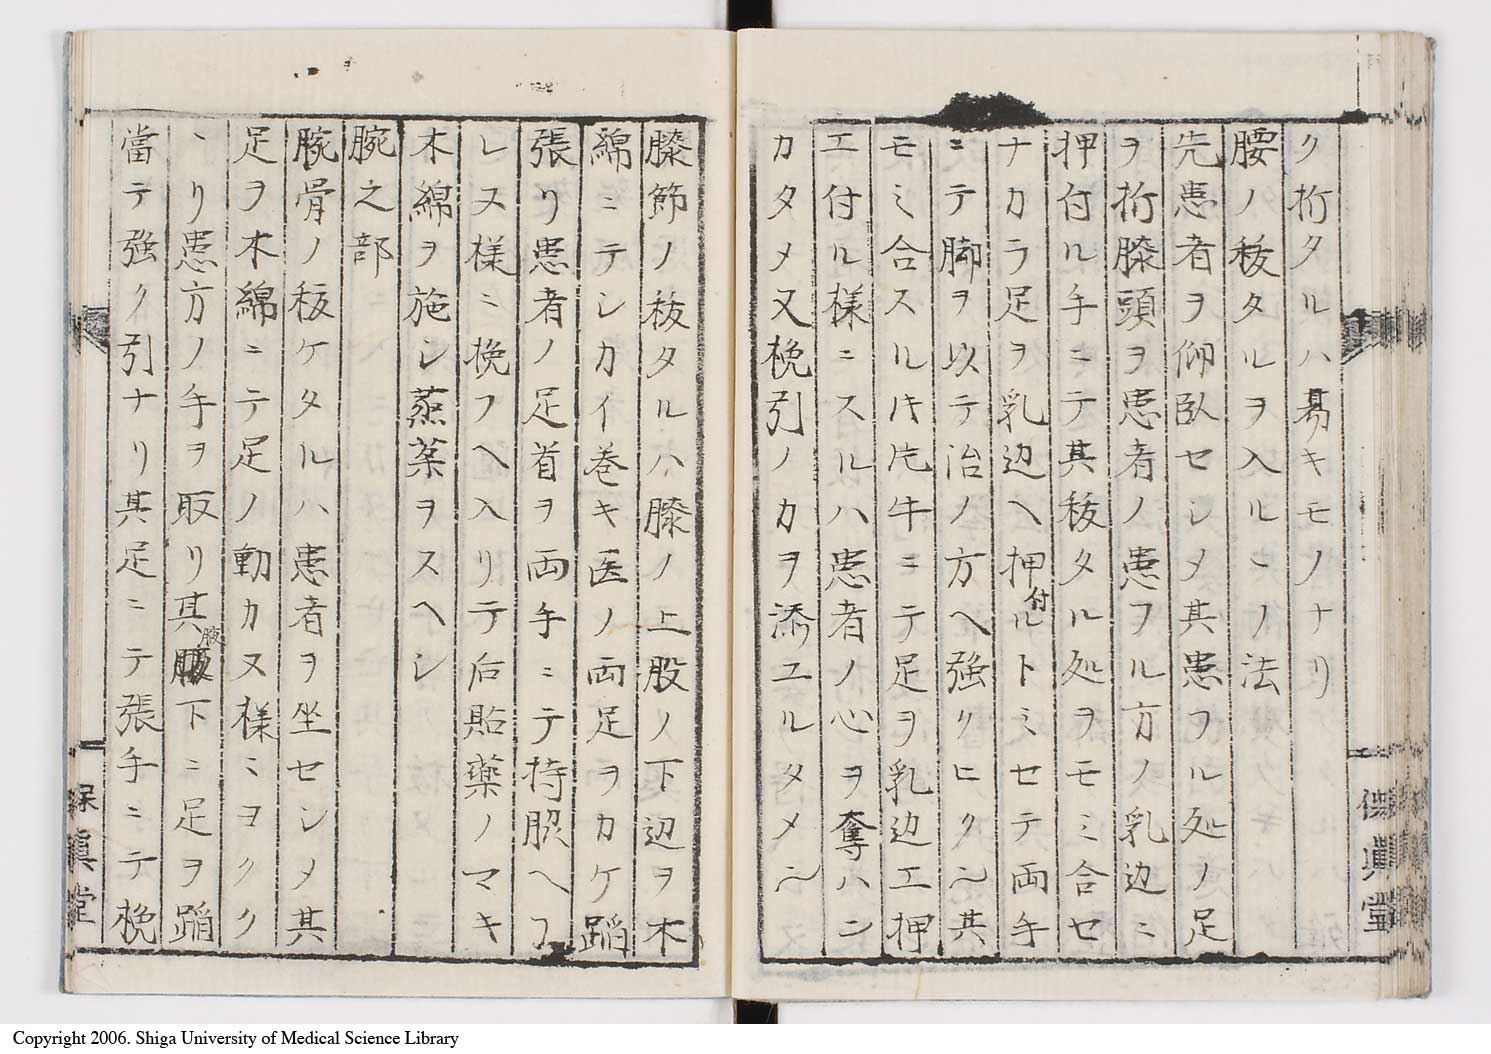 ク折タルハ易キモノナリ
腰ノ秡タルヲ入ルヽノ法
先患者ヲ仰臥セシメ其患ヲル処ノ足
ヲ折膝頭ヲ患者ノ患フル方ノ乳辺ニ
押付ル手ニテ其秡タル処ヲモミ合セ
ナカラ足ヲ乳辺ヘ押付ルトミセテ両手
ニテ脚ヲ以テ治ノ方ヘ強クヒクヘシ其
モミ合スル片牛ニテ足ヲ乳辺エ押
エ付ル様ニスルハ患者ノ心ヲ奪ハン
カタメ又挽引ノカヲ添ユルタメヘシ
膝節ノ秡タルハ膝ノ上股ノ下辺ヲ木
綿ニテシカイ巻キ医ノ両足ヲカケ蹈
張リ患者ノ足首ヲ両手ニテ持股ヘフ
レヌ様ニ挽フヘ入リテ后貼薬ノマキ
木綿ヲ施シ蒸薬ヲスヘシ
腕之部
腕骨ノ秡ケタルハ患者ヲ坐セシメ其
足ヲ木綿ニテ足ノ動カヌ様ミヨクク
ヽリ患方ノ手ヲ取リ其腋下ニ足ヲ蹈
當テ強ク引ナリ其足ニテ張手ニテ挽
保真堂
保眞堂
Copyright 2006. Shiga University of Medical Science Library